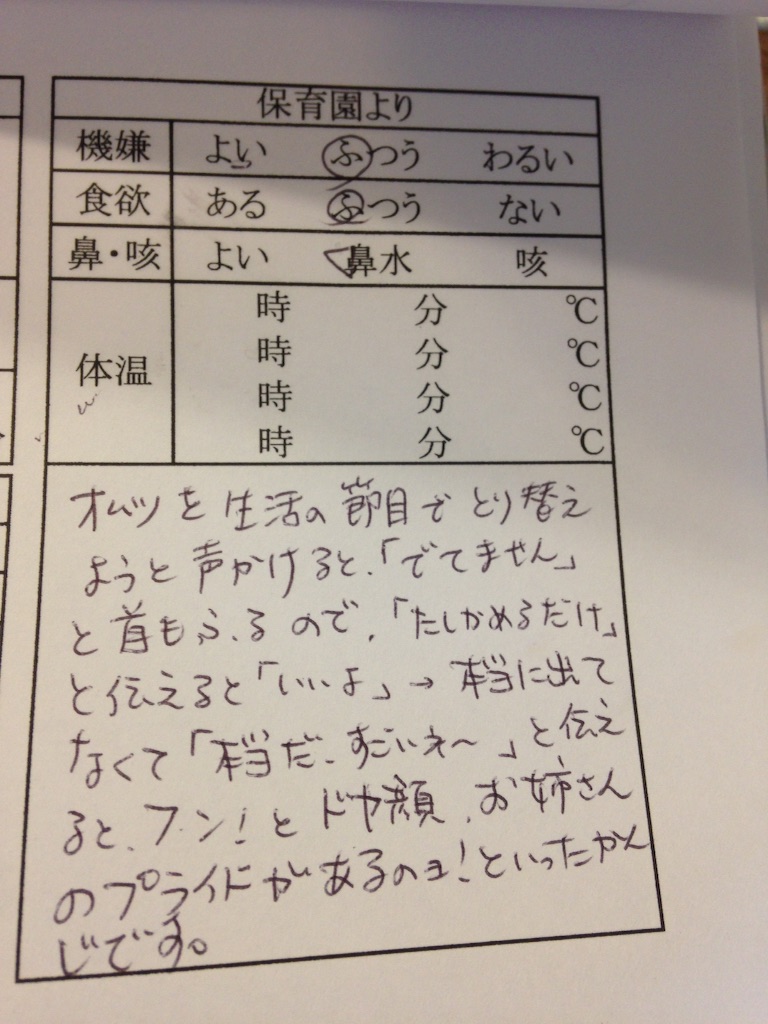 保育園より
機嫌 よい ふつう わるい
食欲 ある ふつう ない
鼻・咳 よい 鼻水 咳
体温 時 分 ℃
時 分 ℃
時 分 ℃
時 分 ℃
オムツを生活の節目でとり替え
ようと声かけると、「でてません」
と首もふるので、「たしかめるだけ」
と伝えると「いいよ」→本当に出て
なくて「本当だ、すごいネ〜」と伝え
ると、フン!とドヤ顔、お姉さん
のプライドがあるのヨ!といったかん
じです。